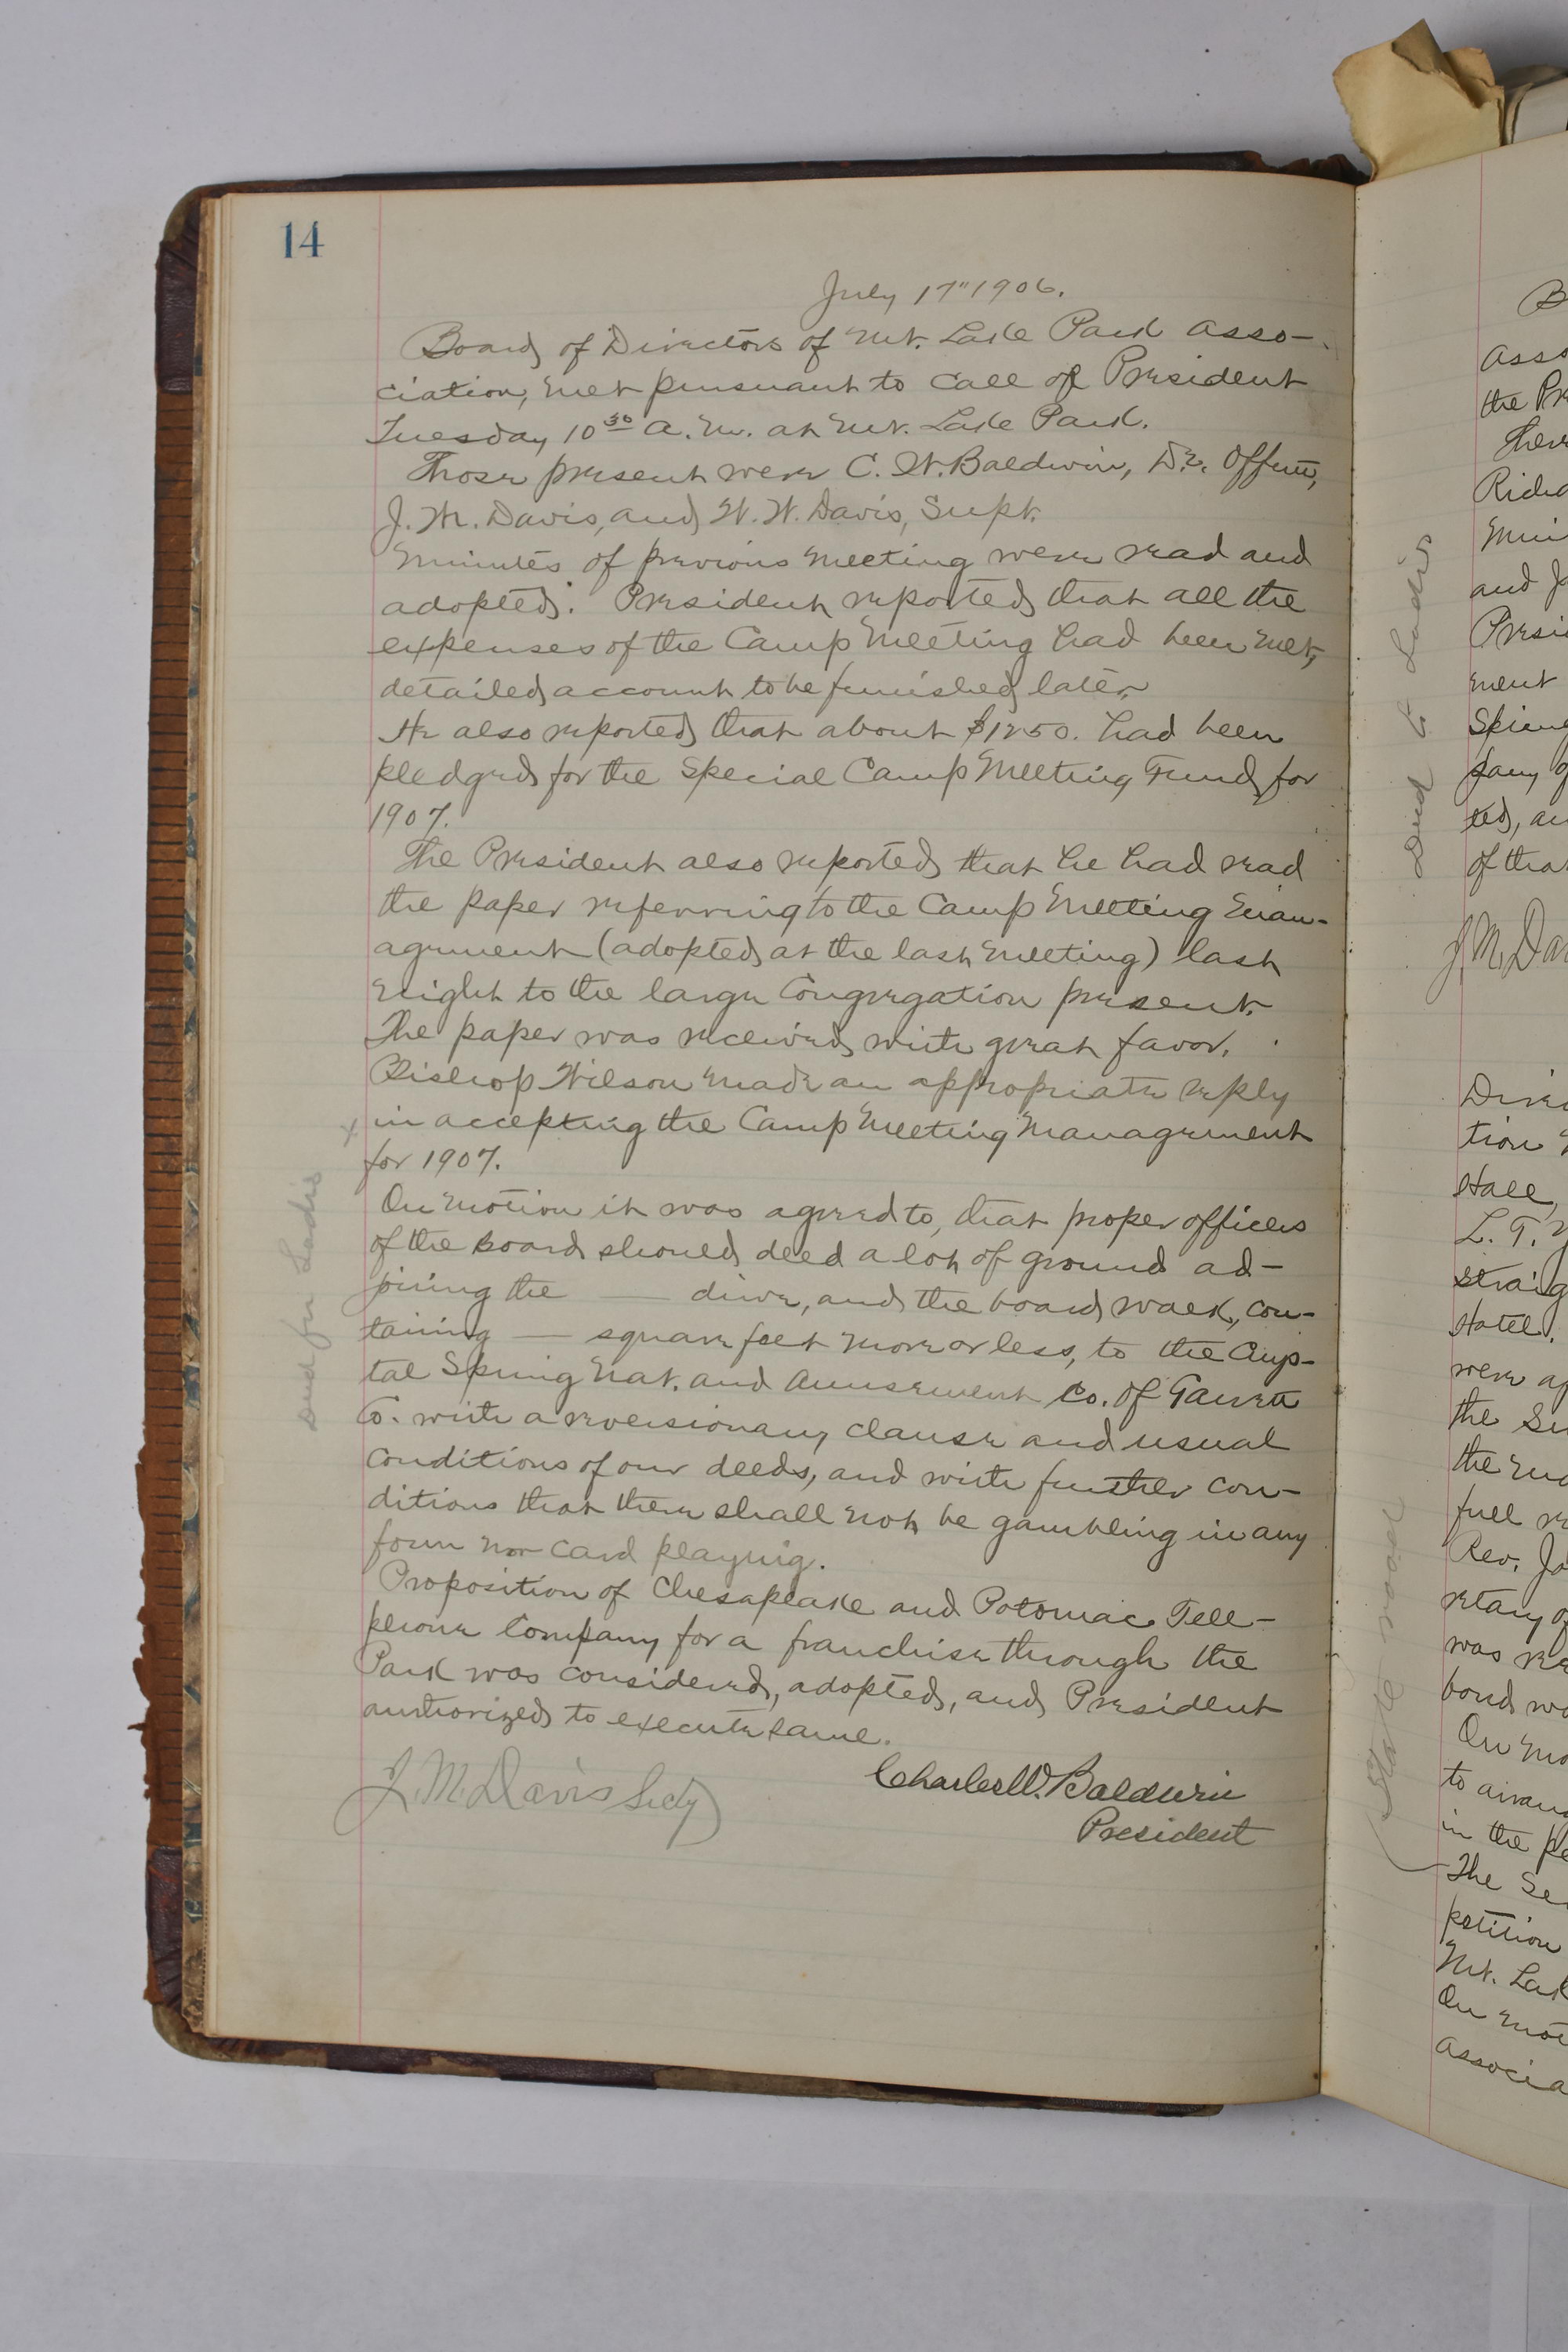 14
July 17" 1906.
Board of Directors of Mt. Lake Park Asso-
ciation, met pursuant to call of President
Tuesday 10 30 A.M. at Mt. Lake Park.
Those present were C. W. Baldwin, Dr. Offutt,
J. M. Davis, and W. W. Davis, Supt.
Minutes of previous meeting were read and
adopted. President reported that all the
expenses of the Camp Meeting had been met,
detailed account to be furnished later.
He also reported that about $1250. had been
pledged for the Special Camp Meeting Fund for
1907.
The President also reported that he had read
the paper referring to the Camp Meeting Man-
agement (adopted at the last meeting) last
night to the large Congregation present.
The paper was received with great favor.
Bishop Wilson made an appropriate reply
x in accepting the Camp Meeting Management
for 1907.
On motion it was agreed to, that proper officers
of the Board should deed a lot of ground ad-
joining the — drive, and the board walk, con-
taining — square feet more or less, to the Crys-
tal Spring Nat. and Amusement Co. of Garrett
Co. with a reversionary clause and usual
conditions of our deeds, and with further con-
ditions that there shall not be gambling in any
form nor card playing.
Proposition of Chesapeake and Potomac Tele-
phone Company for a franchise through the
Park was considered, adopted, and President
authorized to execute same.
J. M. Davis Secty
Charles W. Baldwin
President
B
asso
the Pr
There
Richa
Min
and J
Presi
ment
Spring
pany
ted, an
of that
J. M. Da
Direc
tion
Hall,
L. T.
straig
Hotel.
were ap
the Su
the
full
Rev. Jo
retary of
was re
bond wa
On mo
to arran
in the
The Se
petition
Mt. Lak
On mot
associa